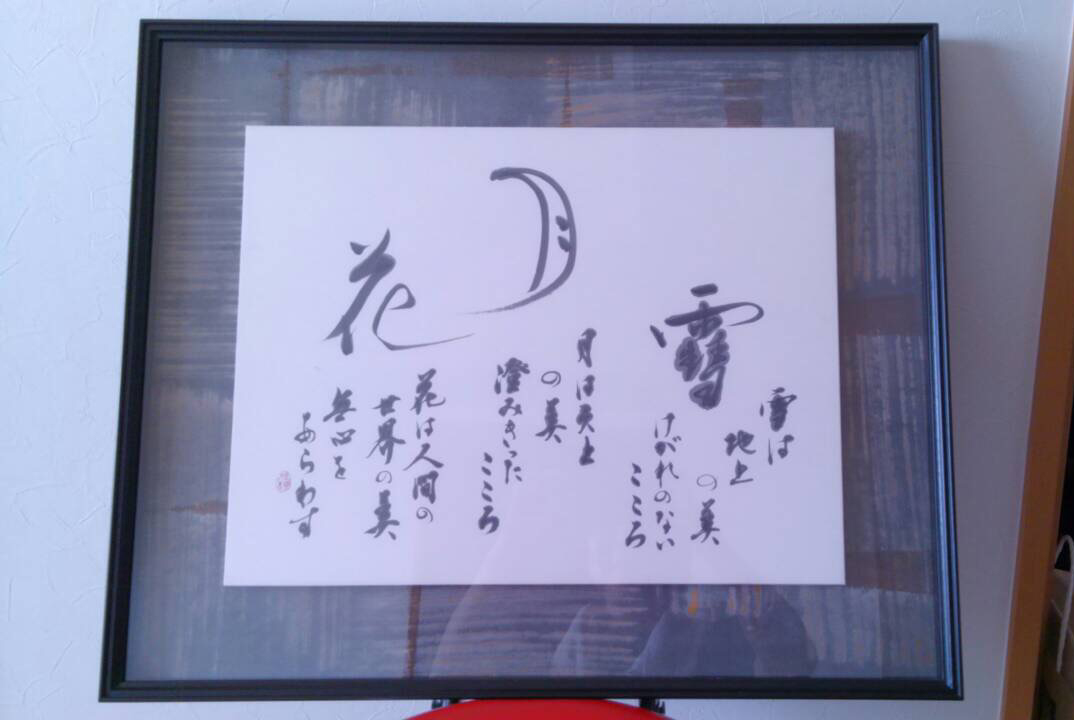 雪
雪は
地上
の美
けがれのない
こころ
月
月は天上
の美
澄みきった
こころ
花
花は人間の
世界の美
無心を
あらわす